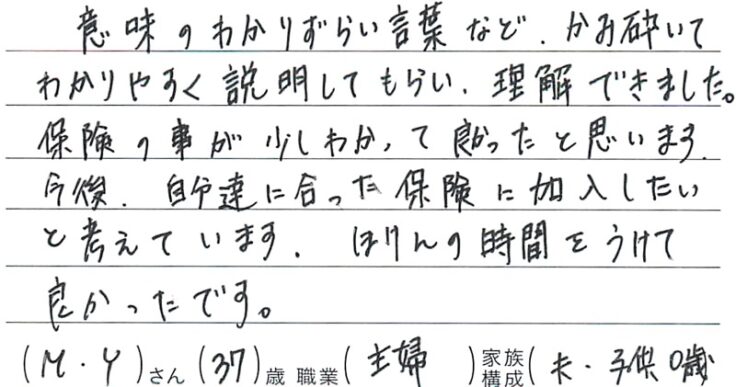 意味のわかりずらい言葉など、かみ砕いて
わかりやすく説明してもらい、理解できました。
保険の事が少しわかって良かったと思います。
今後、自分達に合った保険に加入したい
と考えています。ほけんの時間をうけて
良かったです。
(M・Y)さん(37)歳 職業(主婦)家族構成(夫・子供0歳